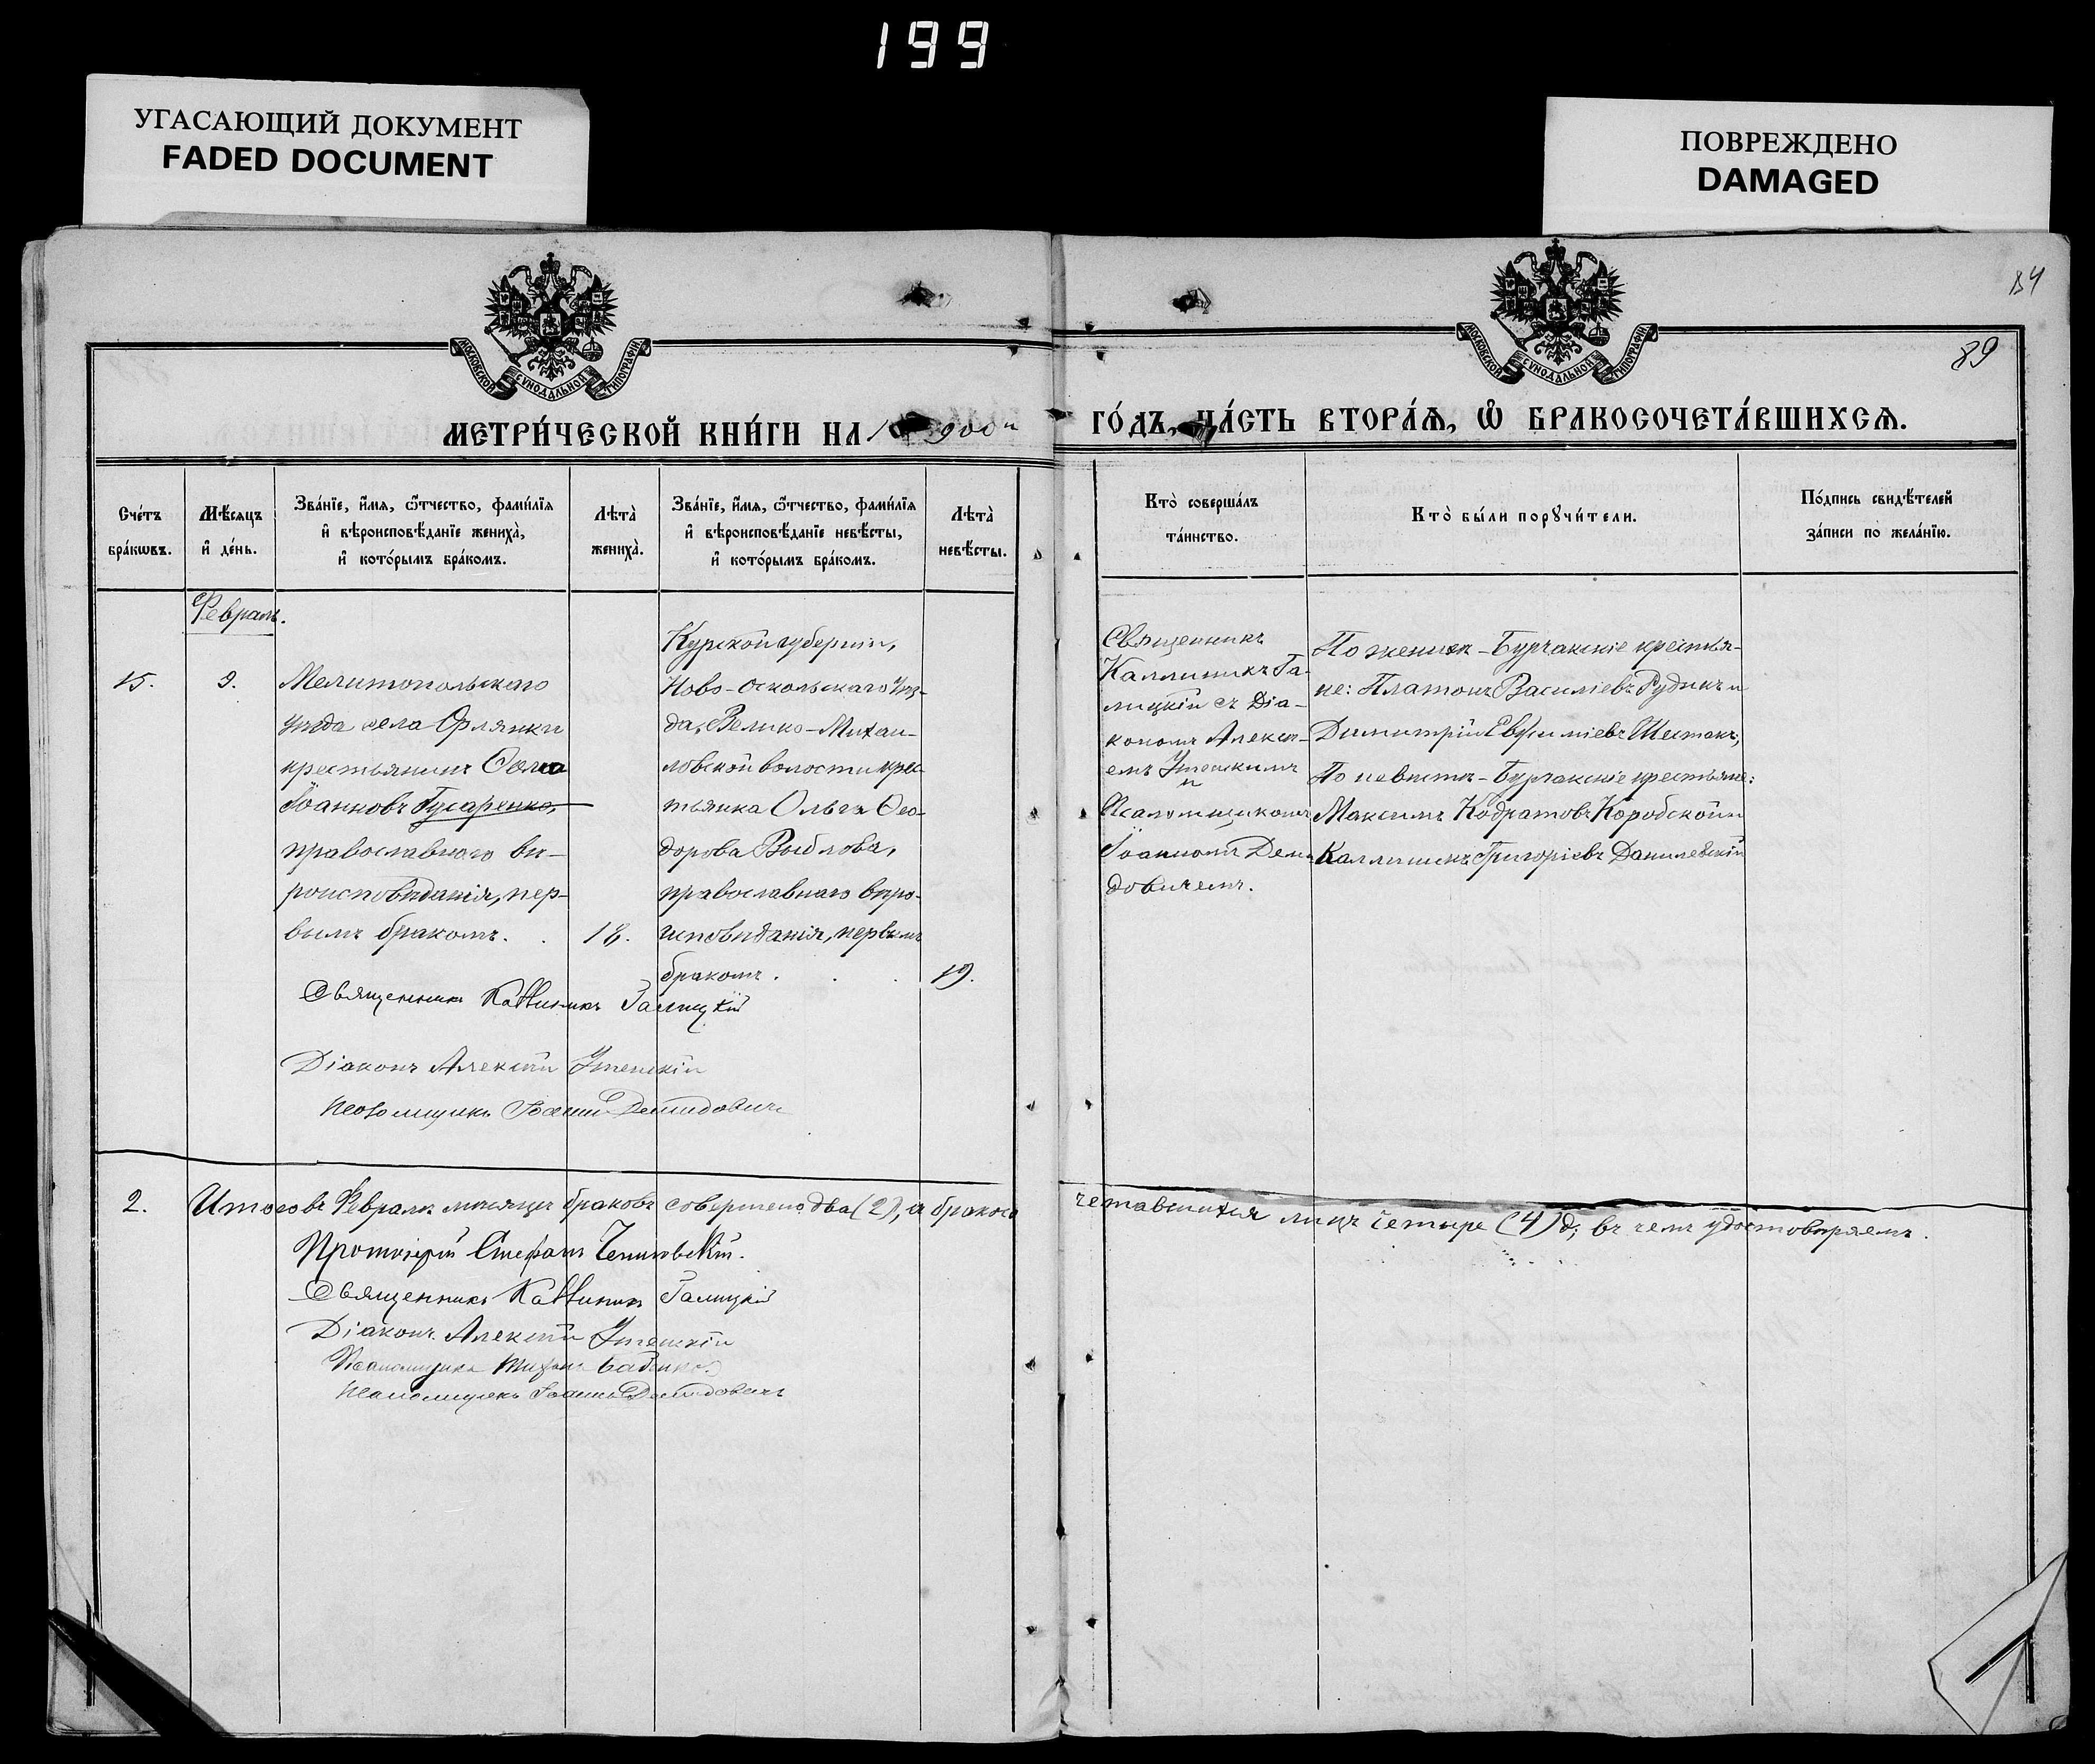 199
УГАСАЮЩИЙ ДОКУМЕНТ
FADED DOCUMENT
ПОВРЕЖДЕНО
DAMAGED
МОСКОВСКОЙ СУНОДАЛЬНОЙ ТИПОГРАФИИ
МОСКОВСКОЙ СУНОДАЛЬНОЙ ТИПОГРАФИИ
84
89
МЕТРИ́ЧЕСКОЙ КНИ́ГИ НА 1900й
ГО́ДЪ, ЧА́СТЬ ВТОРА́Ѧ, Ѽ БРАКОСОЧЕТА́ВШИХСѦ.
Сче́тъ бра́кѡвъ.
Мѣ́сѧцъ и҆ де́нь.
Зва́нїе, и҆́мѧ, ѻ҆́тчество, фами́лїѧ
и҆ вѣроисповѣ́данїе жениха̀,
и҆ кото́рымъ бра́комъ.
Лѣта̀ жениха̀.
Зва́нїе, и҆́мѧ, ѻ҆́тчество, фами́лїѧ
и҆ вѣроисповѣ́данїе невѣ́сты,
и҆ кото́рымъ бра́комъ.
Лѣта̀ невѣ́сты.
Кто̀ соверша́лъ та́инство.
Кто̀ бы́ли порꙋчи́тели.
По́дпись свидѣ́телей за́писи по жела́нїю.
Февраль.
15.
9.
Мелитопольскаго
уѣзда села Орлянки
крестьянинъ
Іоанновъ Гусаренко,
православнаго вѣ-
роисповѣданія, пер-
вымъ бракомъ.
18.
Курской губерніи,
Ново-Оскольскаго уѣз-
да, Велико-Михаи-
ловской волости крес-
тьянка Ольга Ѳео-
дорова Выблова,
православнаго вѣро-
исповѣданія, первымъ
бракомъ.
19.
Священникъ
Каллиникъ Га-
лицкій съ Діа-
кономъ Алексі-
емъ
и
Псаломщикомъ
Іоанномъ Деми
довичемъ.
По женихѣ - Бурчакскіе крестья-
не: Платонъ Василіевъ Рудикъ и
Димитрій Евфиміевъ Шестакъ,
По невѣстѣ - Бурчакскіе крестьяне:
Максимъ Кодратовъ Коробской и
Каллиникъ Григоріевъ Данилевскій
Священникъ Каллиникъ Галицкій
Діаконъ Алексій
Псаломщикъ Іоаннъ Демидовичъ
2.
Итого въ Февралѣ мѣсяцѣ браковъ совершено два (2), а бракосо
четавшихся лицъ четыре (4) д; въ чемъ удостовѣряемъ.
Протоіерей Стефанъ
Священникъ Каллиникъ Галицкій
Діаконъ Алексій
Псаломщикъ
Псаломщикъ Іоаннъ Демидовичъ